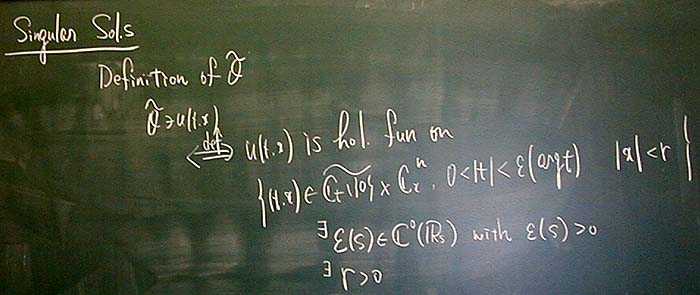 Singular Sol.s
Definition of Õ
Õ ∋ u(t,x)
⇔def u(t,x) is hol. fun on
{(t,x) ∈ \widetilde{ℂ_t∖{0}} × ℂ_x^n, 0<|t|<ε(arg t) |x|<r}
∃ε(s) ∈ C⁰(ℝ_s) with ε(s)>0
∃r>0